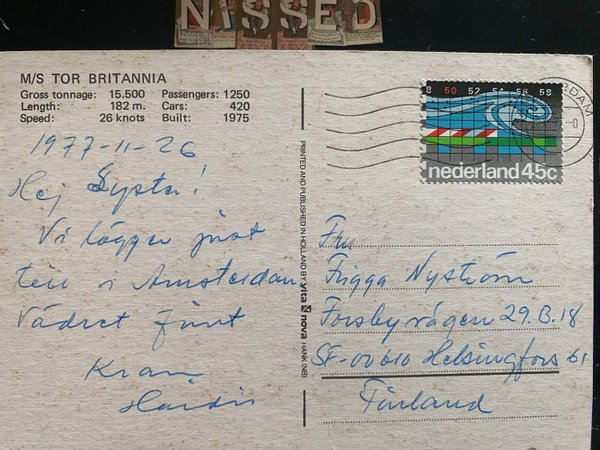 NISSED
M/S TOR BRITANNIA
Gross tonnage: 15.500 Passengers: 1250
Length: 182 m. Cars: 420
Speed: 26 knots Built: 1975
1977-11-26
Hej Systu!
Vi lägger just
till i Amsterdam
Vädret fint
Kram
PRINTED AND PUBLISHED IN HOLLAND BY vita nova
8 50 52 54 56 58
nederland 45c
DAM
Fru
Frigga Nyström
Forsbyvägen 29.B.18
SF-00610 Helsingfors 61
Finland